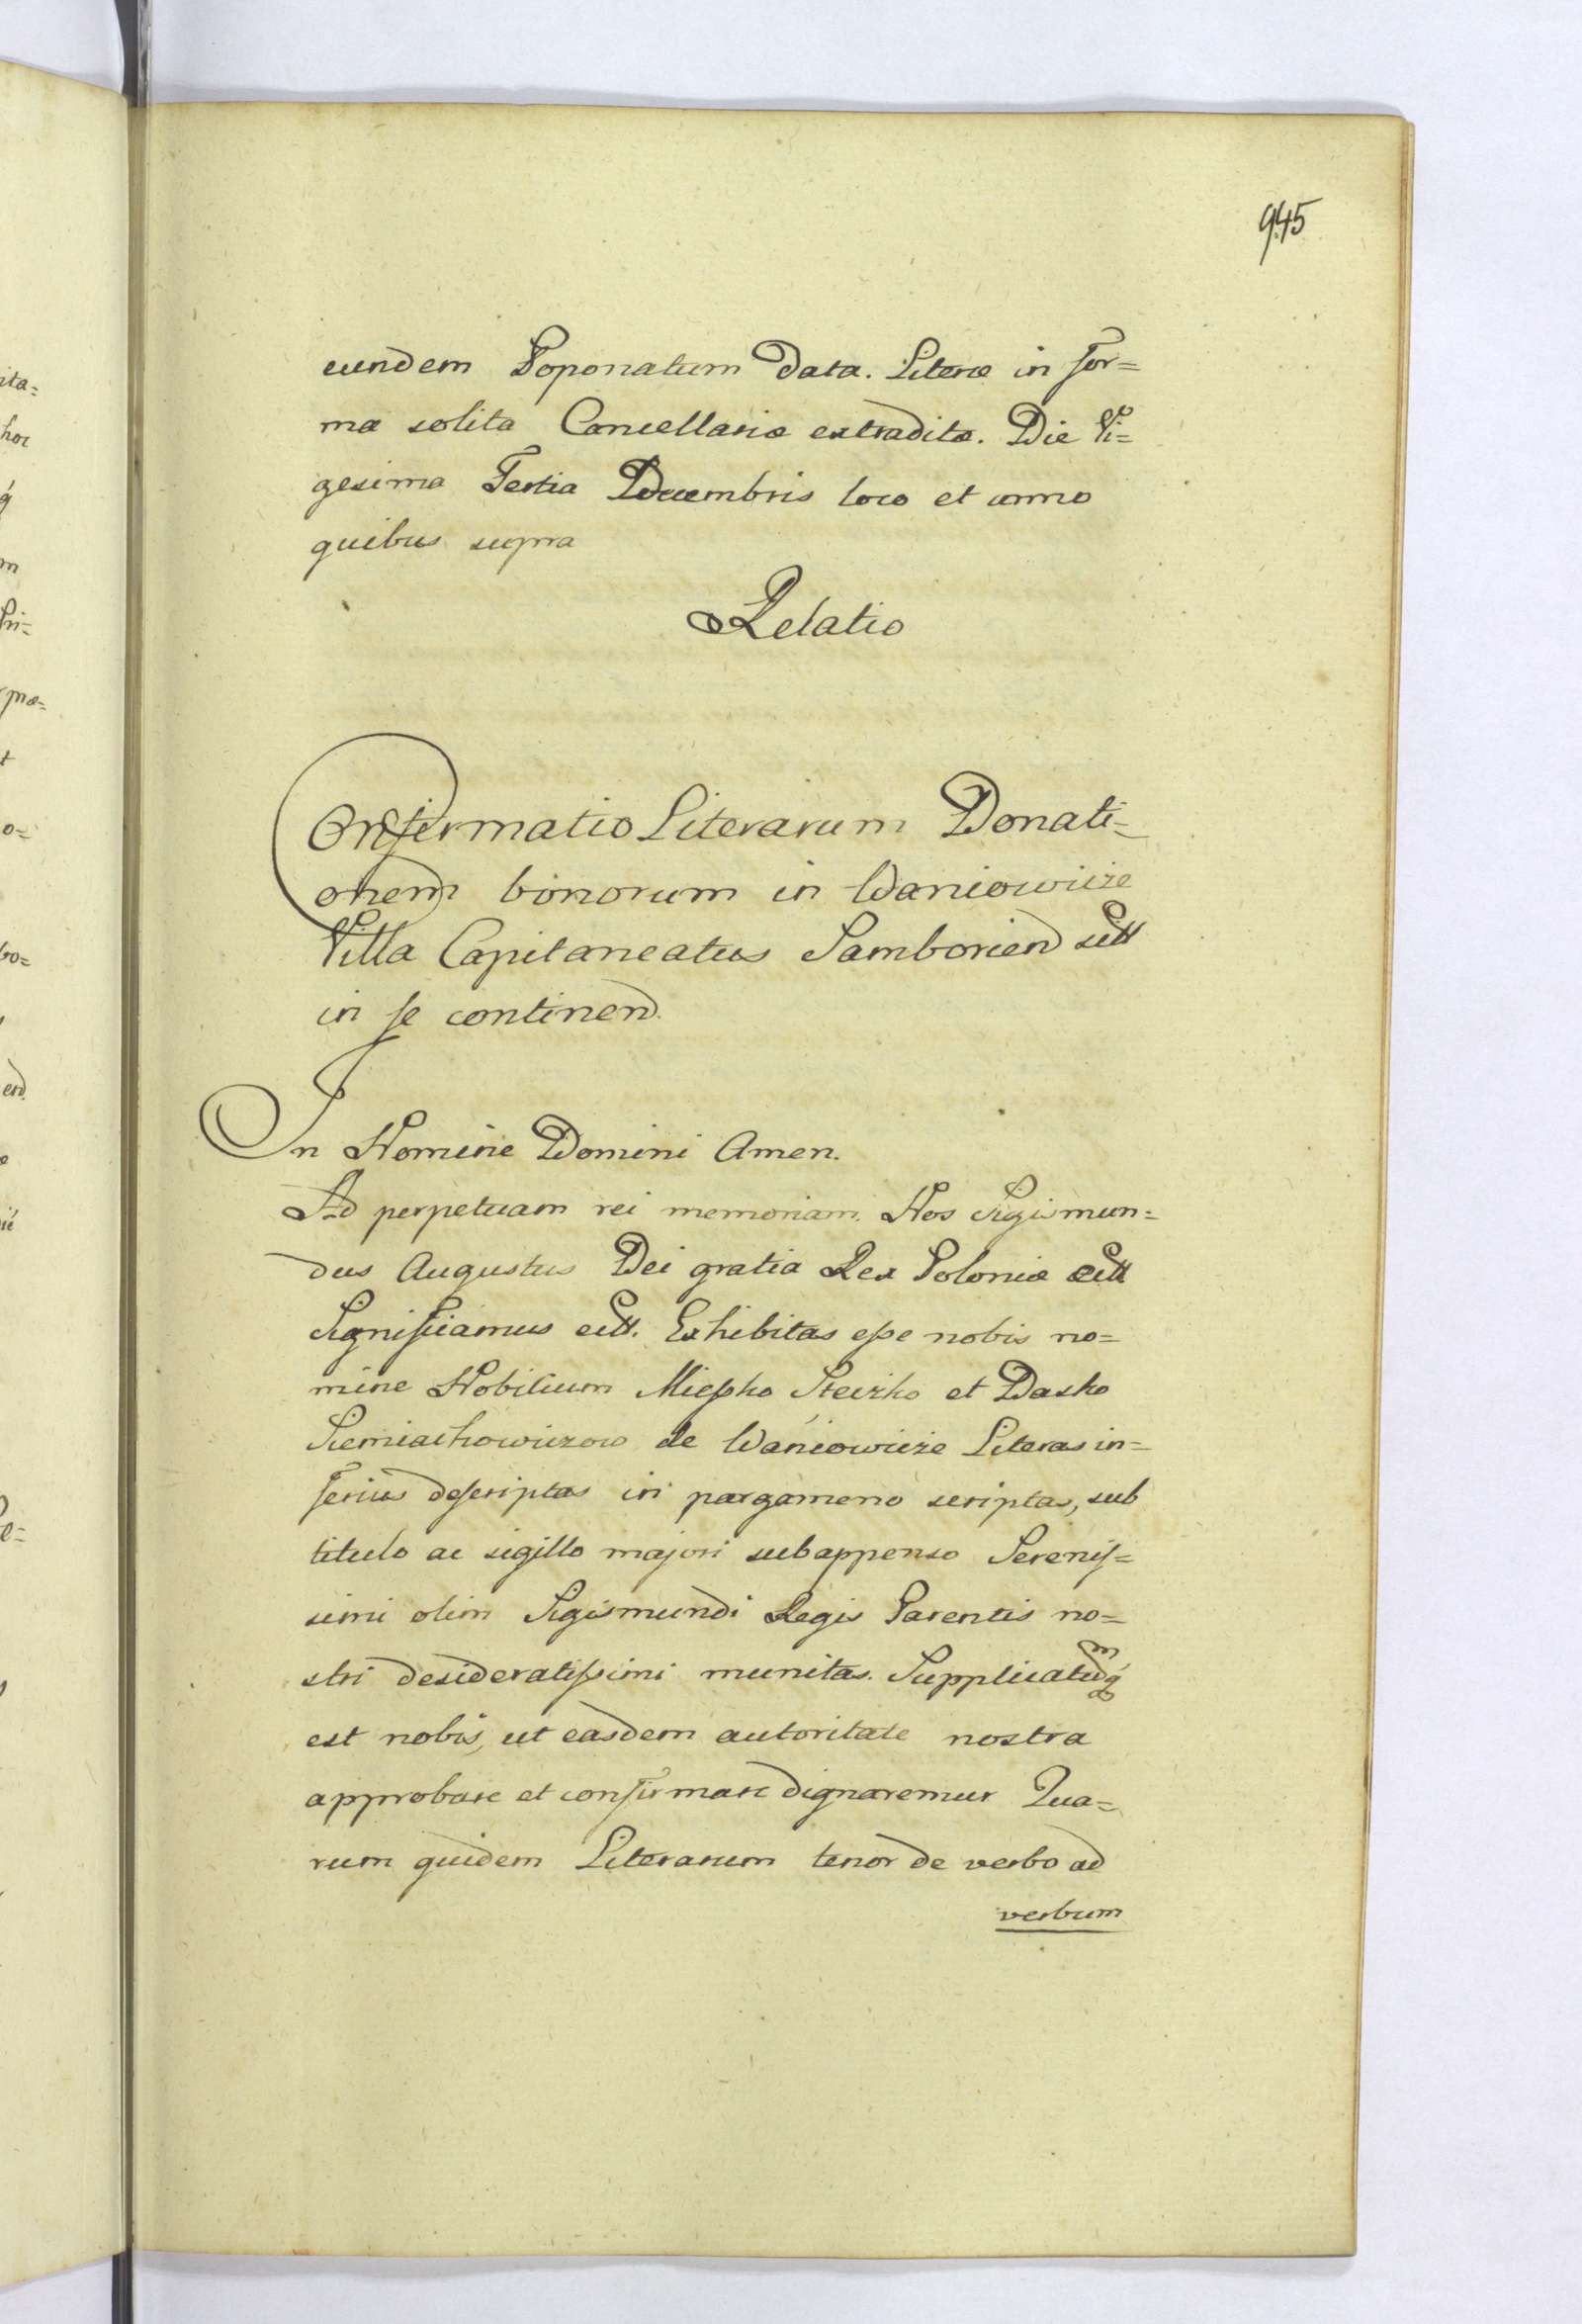 945
eundem Poponatum data. Literæ in for=
ma solita Cancellariæ extraditæ. Die Vi=
gesima Tertia Decembris loco et anno
quibus supra
Relatio
Confirmatio Literarum Donati=
onem bonorum in Waniowicze
Villa Capitaneatus Samborien ett
in se continen.
In Nomine Domini Amen.
Ad perpetuam rei memoriam. Nos Sigismun=
dus Augustus Dei gratia Rex Poloniæ ett
Significamus ett. Exhibitas esse nobis no=
mine Nobilium Miesko Steczko et Dasko
Siemiachowiczow de Waniowicze Literas in=
ferius descriptas in pargameno scriptas, sub
titulo ac sigillo majori subappenso Serenis=
simi olim Sigismundi Regis Parentis no=
stri desideratissimi munitas. Supplicatumq́
est nobis, ut easdem autoritate nostra
approbare et confirmare dignaremur Qua=
rum quidem Literarum tenor de verbo ad
verbum
ita=
hoc
q́
m
Pri=
præ=
t
o=
bo=
end.
e
ié
e=